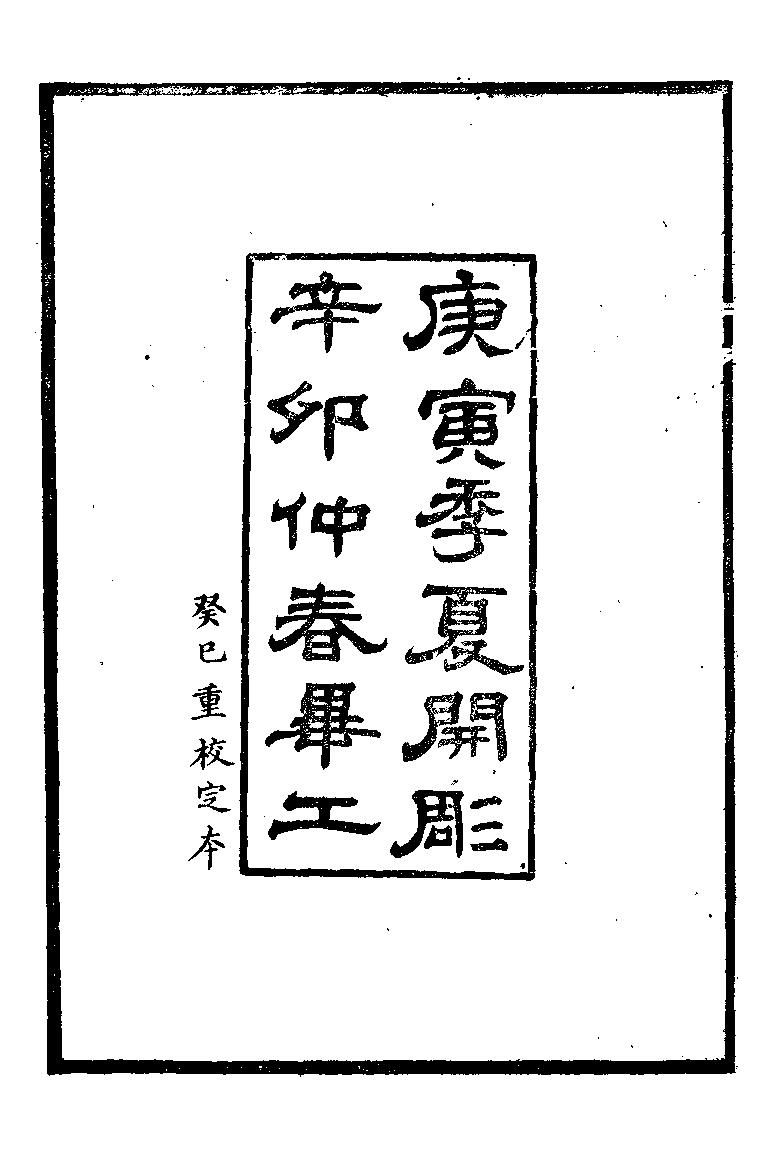 庚寅季夏開彫
辛卯仲春畢工
癸巳重校定本